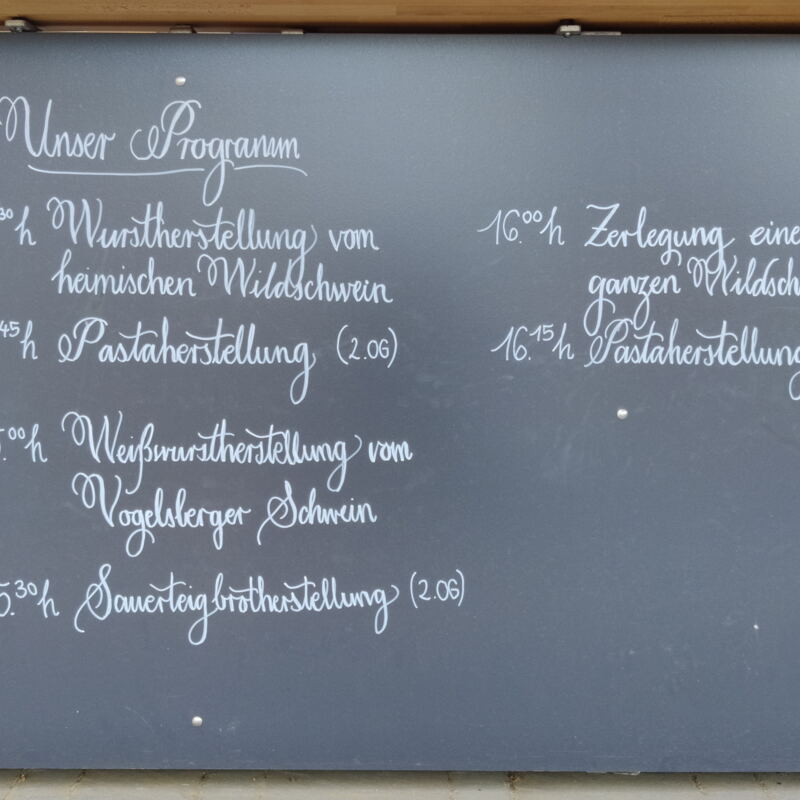 Unser Programm
30h Wurstherstellung vom
heimischen Wildschwein
45h Pastaherstellung (2.OG)
.00h Weißwurstherstellung vom
Vogelsberger Schwein
5.30h Sauerteigbrotherstellung (2.OG)
16.00h Zerlegung eine
ganzen Wildsch
16.15h Pastaherstellung